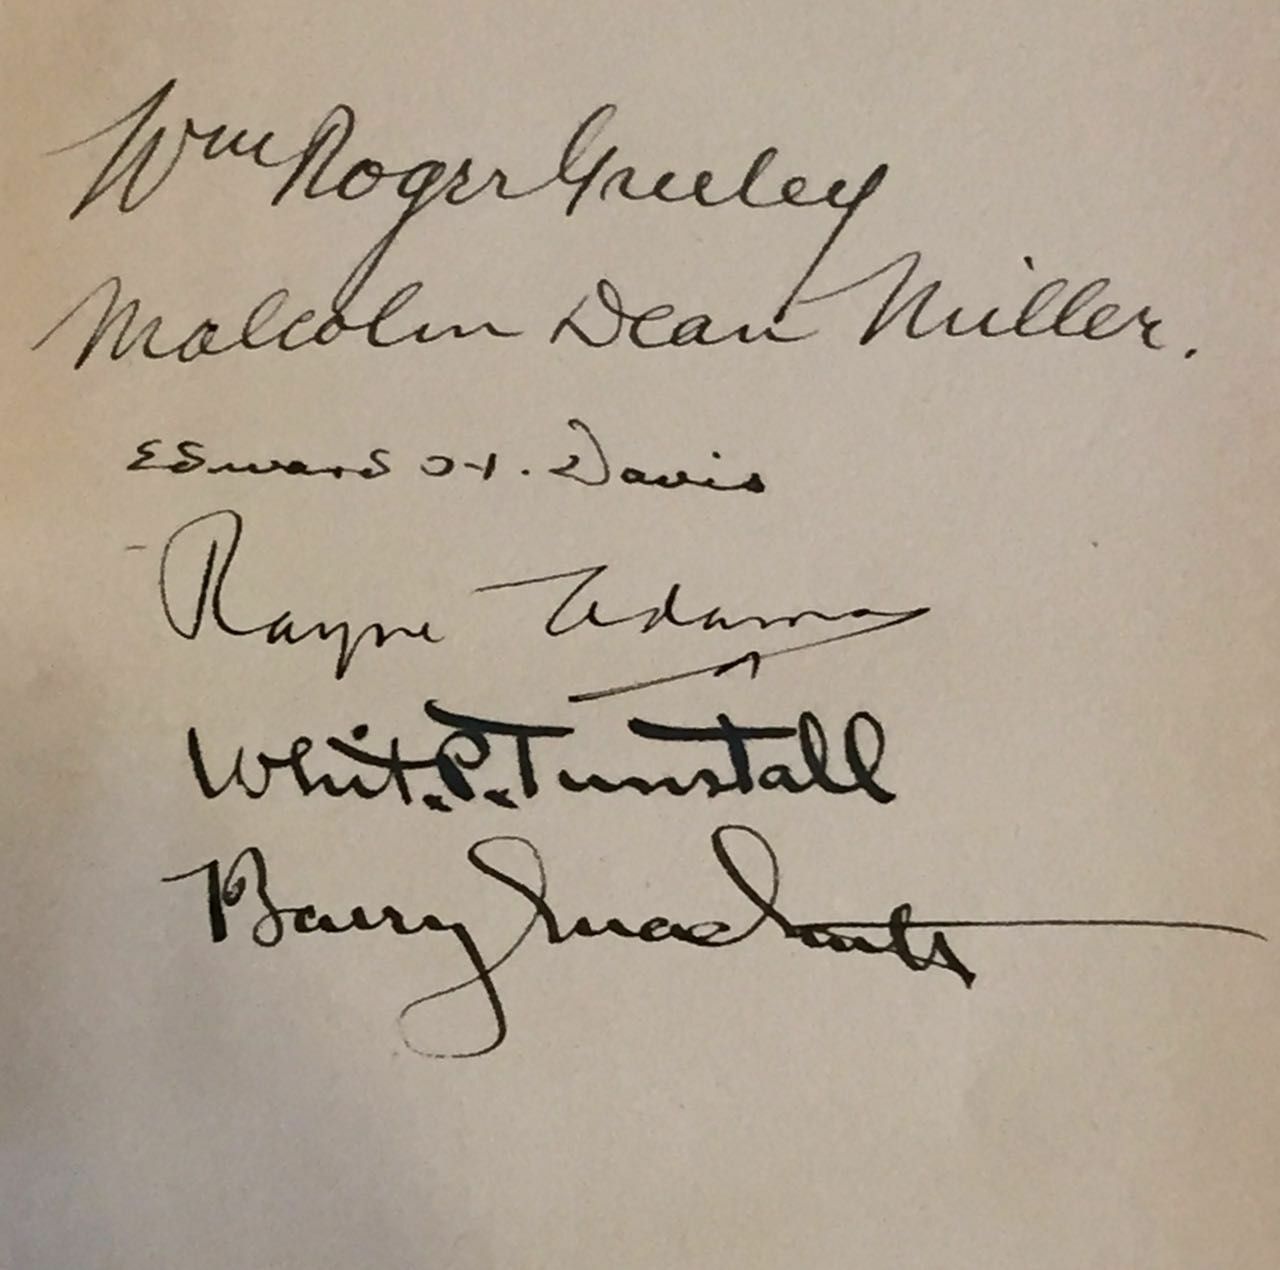 Wm Roger Greeley
Malcolm Dean Miller.
Edward H. Davis
Rayne Adams
Whit.P.Tunstall
Barry